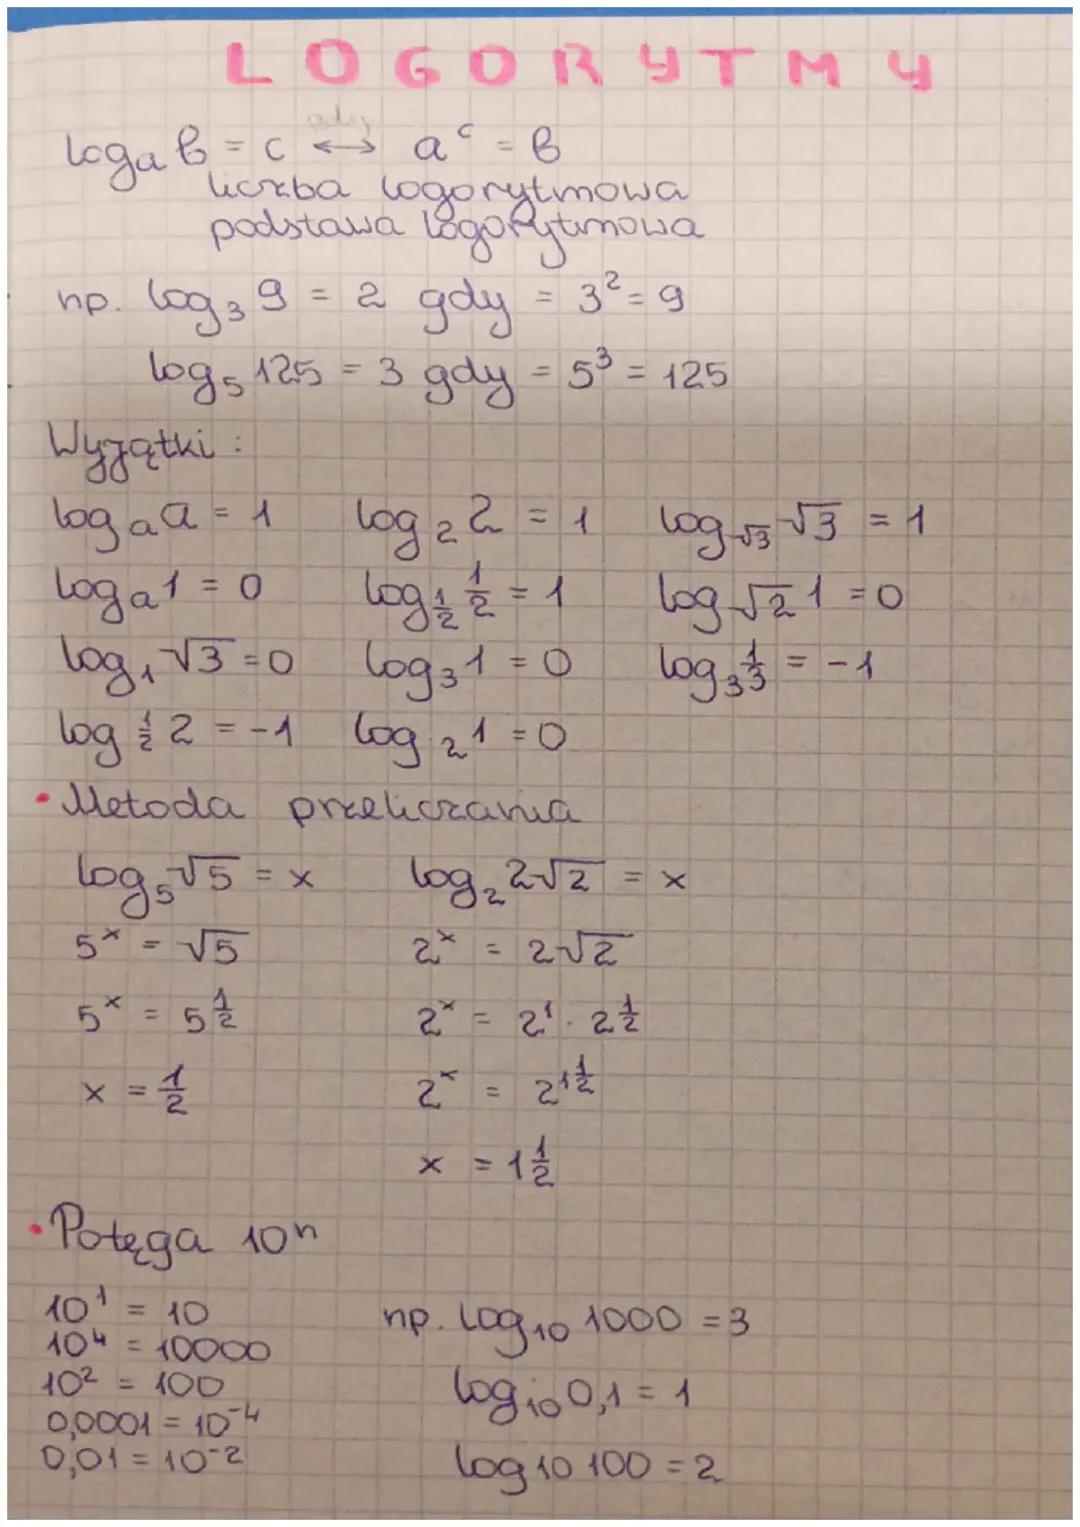 LOGORYTMY
gdy
logₐ b = c ↔ aᶜ = b
liczba logorytmowa
podstawa logorytmowa
np. log₃ 9 = 2 gdy = 3² = 9
log₅ 125 = 3 gdy = 5³ = 125
Wyjątki :
logₐ a = 1 log₂ 2 = 1 log_√3 √3 = 1
logₐ 1 = 0 log_½ ½ = 1 log_√2 1 = 0
log₁ √3 = 0 log₃ 1 = 0 log₃ ⅓ = -1
log_½ 2 = -1 log₂ 1 = 0
• Metoda przeliczania
log₅ √5 = x log₂ 2√2 = x
5ˣ = √5 2ˣ = 2√2
5ˣ = 5^½ 2ˣ = 2¹ · 2^½
x = ½ 2ˣ = 2^1½
x = 1½
• Potęga 10ⁿ
10¹ = 10 np. log₁₀ 1000 = 3
10⁴ = 10000
10² = 100 log₁₀ 0,1 = 1
0,0001 = 10⁻⁴
0,01 = 10⁻² log 10 100 = 2